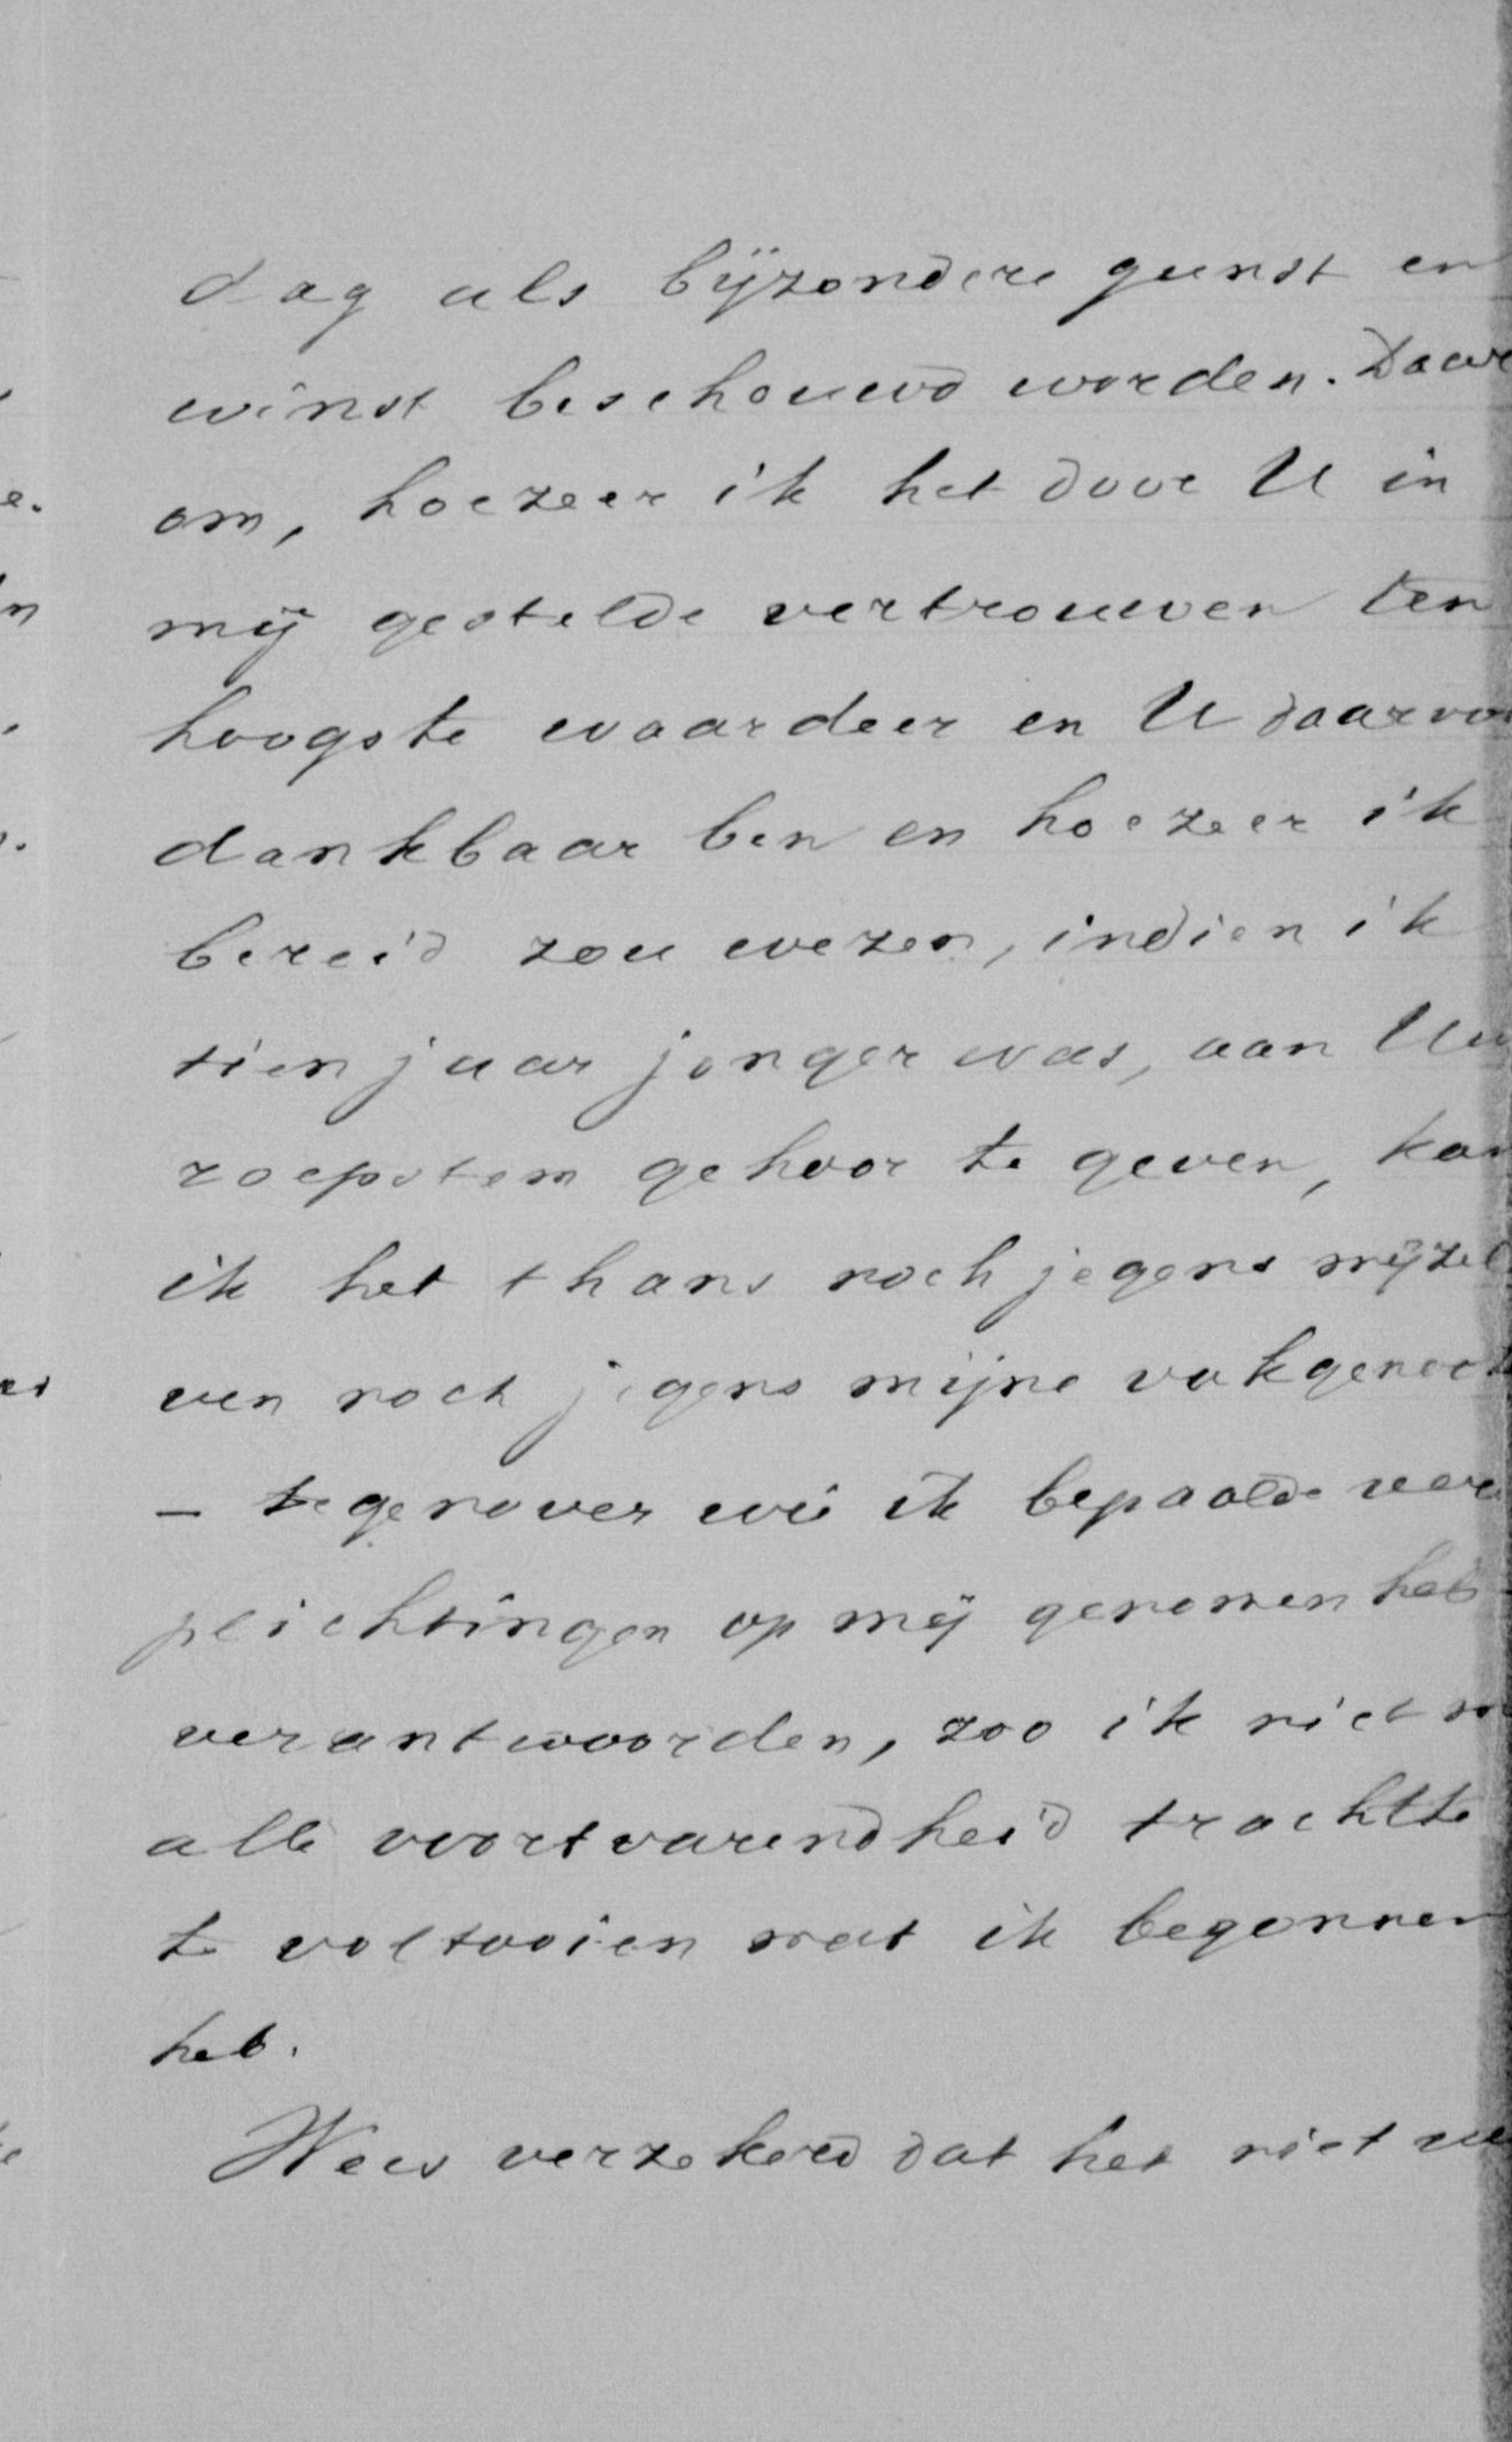 dag als bijzondere gunst en
winst beschouwd worden. Daar
om, hoezeer ik het door U in
mij gestelde vertrouwen ten
hoogste waardeer en U daarvo
dankbaar ben en hoezeer ik
bereid zou wezen, indien ik
tien jaar jonger was, aan Uw
roepstem gehoor te geven, kan
ik het thans noch jegens mijzel
ven noch jegens mijne vakgenoot
– tegenover wie ik bepaalde ver
plichtingen op mij genomen heb –
verantwoorden, zoo ik niet m
alle voortvarendheid trachtte
te voltooien wat ik begonnen
heb.
Wees verzekerd dat het niet